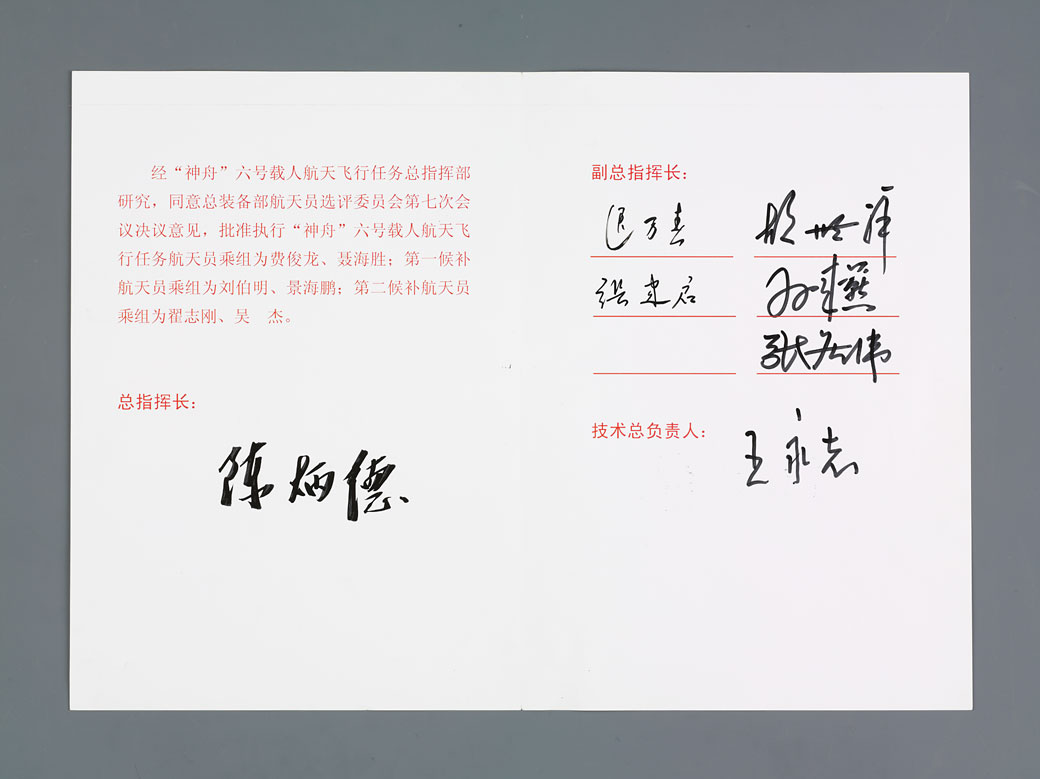 经“神舟”六号载人航天飞行任务总指挥部
研究，同意总装备部航天员选评委员会第七次会
议决议意见，批准执行“神舟”六号载人航天飞
行任务航天员乘组为费俊龙、聂海胜；第一候补
航天员乘组为刘伯明、景海鹏；第二候补航天员
乘组为翟志刚、吴　杰。
总指挥长：
陈炳德
副总指挥长：
迟万春 胡世祥
张建启 孙来燕
张庆伟
技术总负责人：
王永志